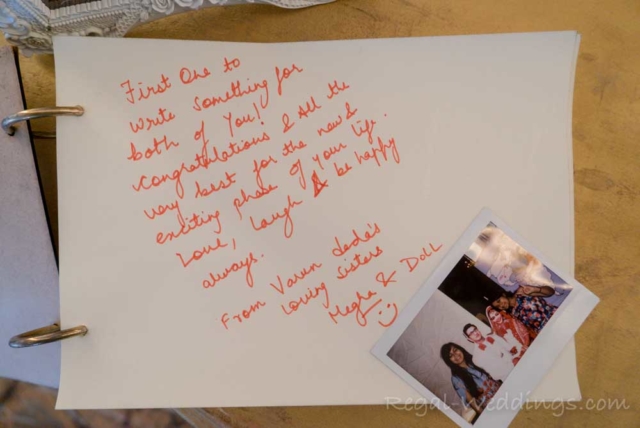 First One to
write something for
both of You!
Congratulations & All the
very best for the new &
exciting phase of your life.
Love, laugh & be happy
always.
From Varun dada's
loving sisters
Megha & Doll
Regal-Weddings.com